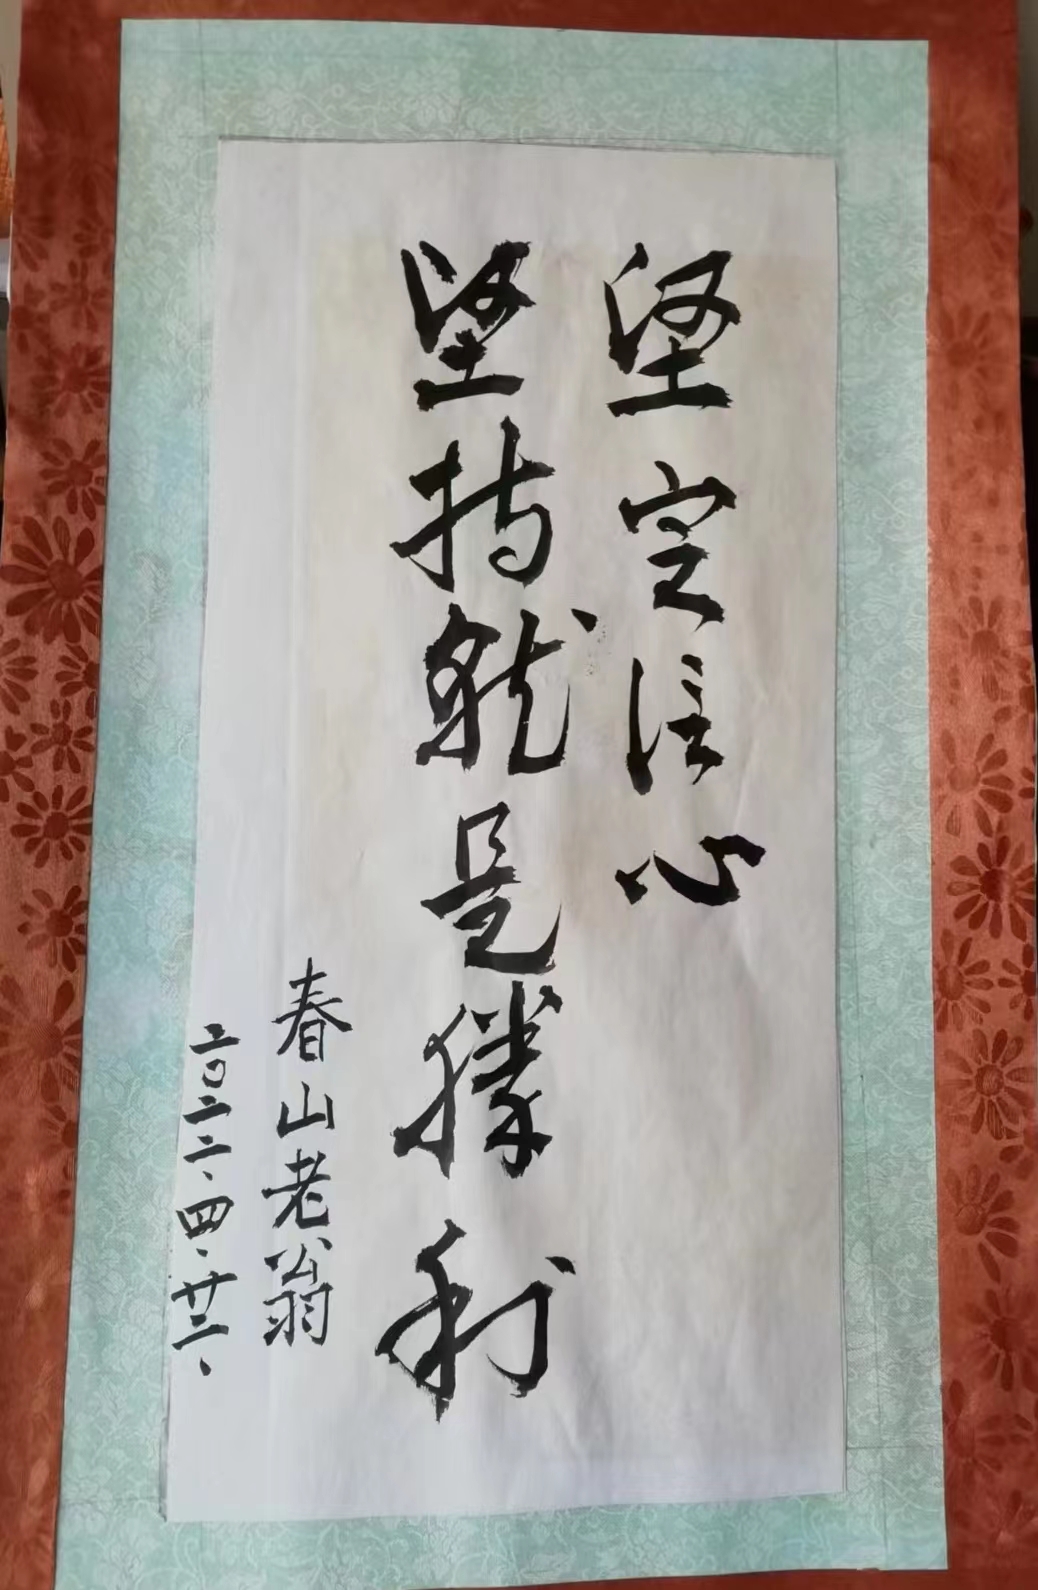 坚定信心
坚持就是胜利
春山老翁
二〇二二、四、廿二、